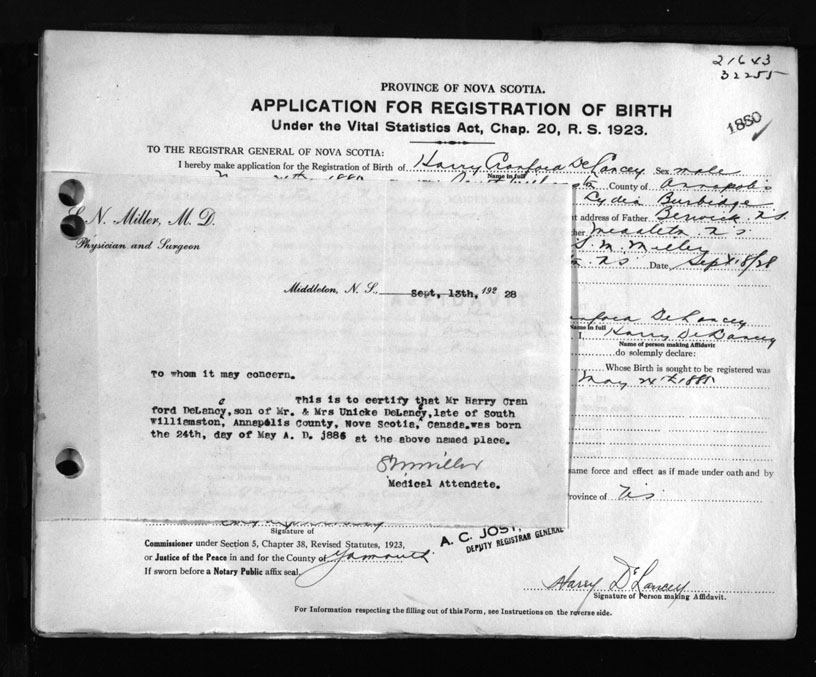 21643
32255
1880
PROVINCE OF NOVA SCOTIA.
APPLICATION FOR REGISTRATION OF BIRTH
Under the Vital Statistics Act, Chap. 20, R. S. 1923.
TO THE REGISTRAR GENERAL OF NOVA SCOTIA:
I hereby make application for the Registration of Birth of Harry Cranford DeLancey Sex male
Name in full
County of Annapolis
Lydia Burbidge
address of Father Berwick N.S.
N. Miller, M. D.
Physician and Surgeon
S. N. Miller
N S Date Sept 18/28
Middleton, N. S., Sept, 13th, 192 28
DeLancey
Name in full
I, Harry DeLancey
Name of person making Affidavit
do solemnly declare:
Whose Birth is sought to be registered was
May 24th 188
To whom it may concern.
This is to certify that Mr Harry Cran
ford DeLancy, son of Mr. & Mrs Unicke DeLancy, late of South
Williamston, Annapolis County, Nova Scotia, Canada.was born
the 24th, day of May A. D. j886 at the above named place.
S N Miller
Medical Attendate.
same force and effect as if made under oath and by
Province of NS
Signature of
Commissioner under Section 5, Chapter 38, Revised Statutes, 1923,
or Justice of the Peace in and for the County of Yarmouth
If sworn before a Notary Public affix seal,
A. C. JOST,
DEPUTY REGISTRAR GENERAL
Harry DeLancey
Signature of Person making Affidavit.
For Information respecting the filling out of this Form, see Instructions on the reverse side.